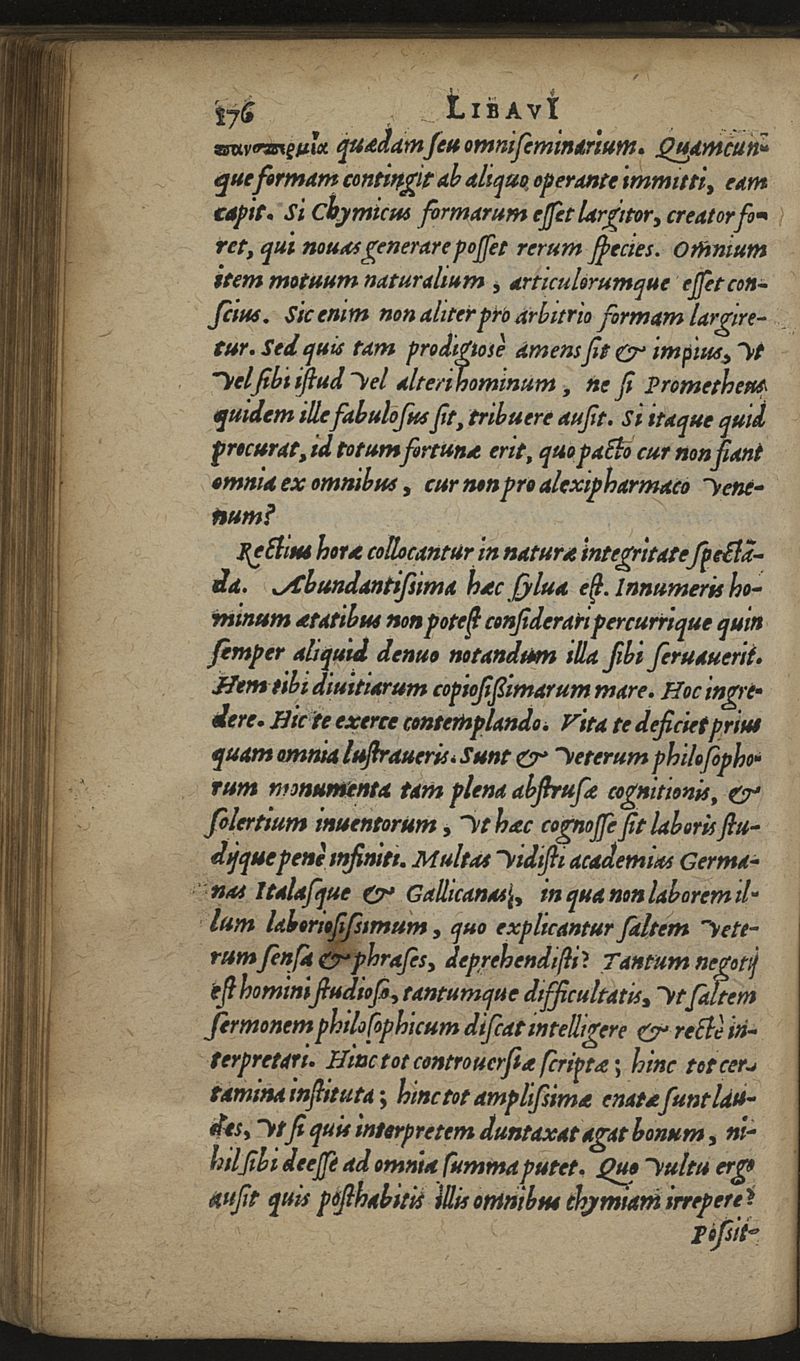 176 LIBAVI
πανσπερμία quædam ſeu omniſeminarium. Quamcun-
que formam contingit ab aliquo operante immitti, eam
capit. Si Chymicus formarum eſſet largitor, creator fo-
ret, qui nouas generare poſſet rerum ſpecies. Omnium
item motuum naturalium, articulorumque eſſet con-
ſcius. Sic enim non aliter pro arbitrio formam largire-
tur. Sed quis tam prodigiosè amens ſit & impius, vt
vel ſibi iſtud vel alteri hominum, ne ſi Prometheus
quidem ille fabuloſus ſit, tribuere auſit. Si itaque quid
procurat, id totum fortunæ erit, quo pacto cur non fiant
omnia ex omnibus, cur non pro alexipharmaco vene-
num?
Rectius horæ collocantur in naturæ integritate ſpectã-
da. Abundantiſsima hæc ſylua eſt. Innumeris ho-
minum ætatibus non poteſt conſiderari percurrique quin
ſemper aliquid denuo notandum illa ſibi ſeruauerit.
Hem tibi diuitiarum copioſiſsimarum mare. Hoc ingre-
dere. Hic te exerce contemplando. Vita te deficiet prius
quam omnia luſtraueris. Sunt & veterum philoſopho-
rum monumenta tam plena abſtruſæ cognitionis, &
ſolertium inuentorum, vt hæc cognoſſe ſit laboris ſtu-
dijque penè infiniti. Multas vidiſti academias Germa-
nas Italaſque & Gallicanas, in qua non laborem il-
lum laborioſiſsimum, quo explicantur ſaltem vete-
rum ſenſa & phraſes, deprehendiſti? Tantum negotij
eſt homini ſtudioſo, tantumque difficultatis, vt ſaltem
ſermonem philoſophicum diſcat intelligere & rectè in-
terpretari. Hinc tot controuerſiæ ſcriptæ; hinc tot cer-
tamina inſtituta; hinc tot ampliſsimæ enatæ ſunt lau-
des, vt ſi quis interpretem duntaxat agat bonum, ni-
hil ſibi deeſſe ad omnia ſumma putet. Quo vultu ergo
auſit quis poſthabitis illis omnibus chymiam irrepere?
Poſsit-